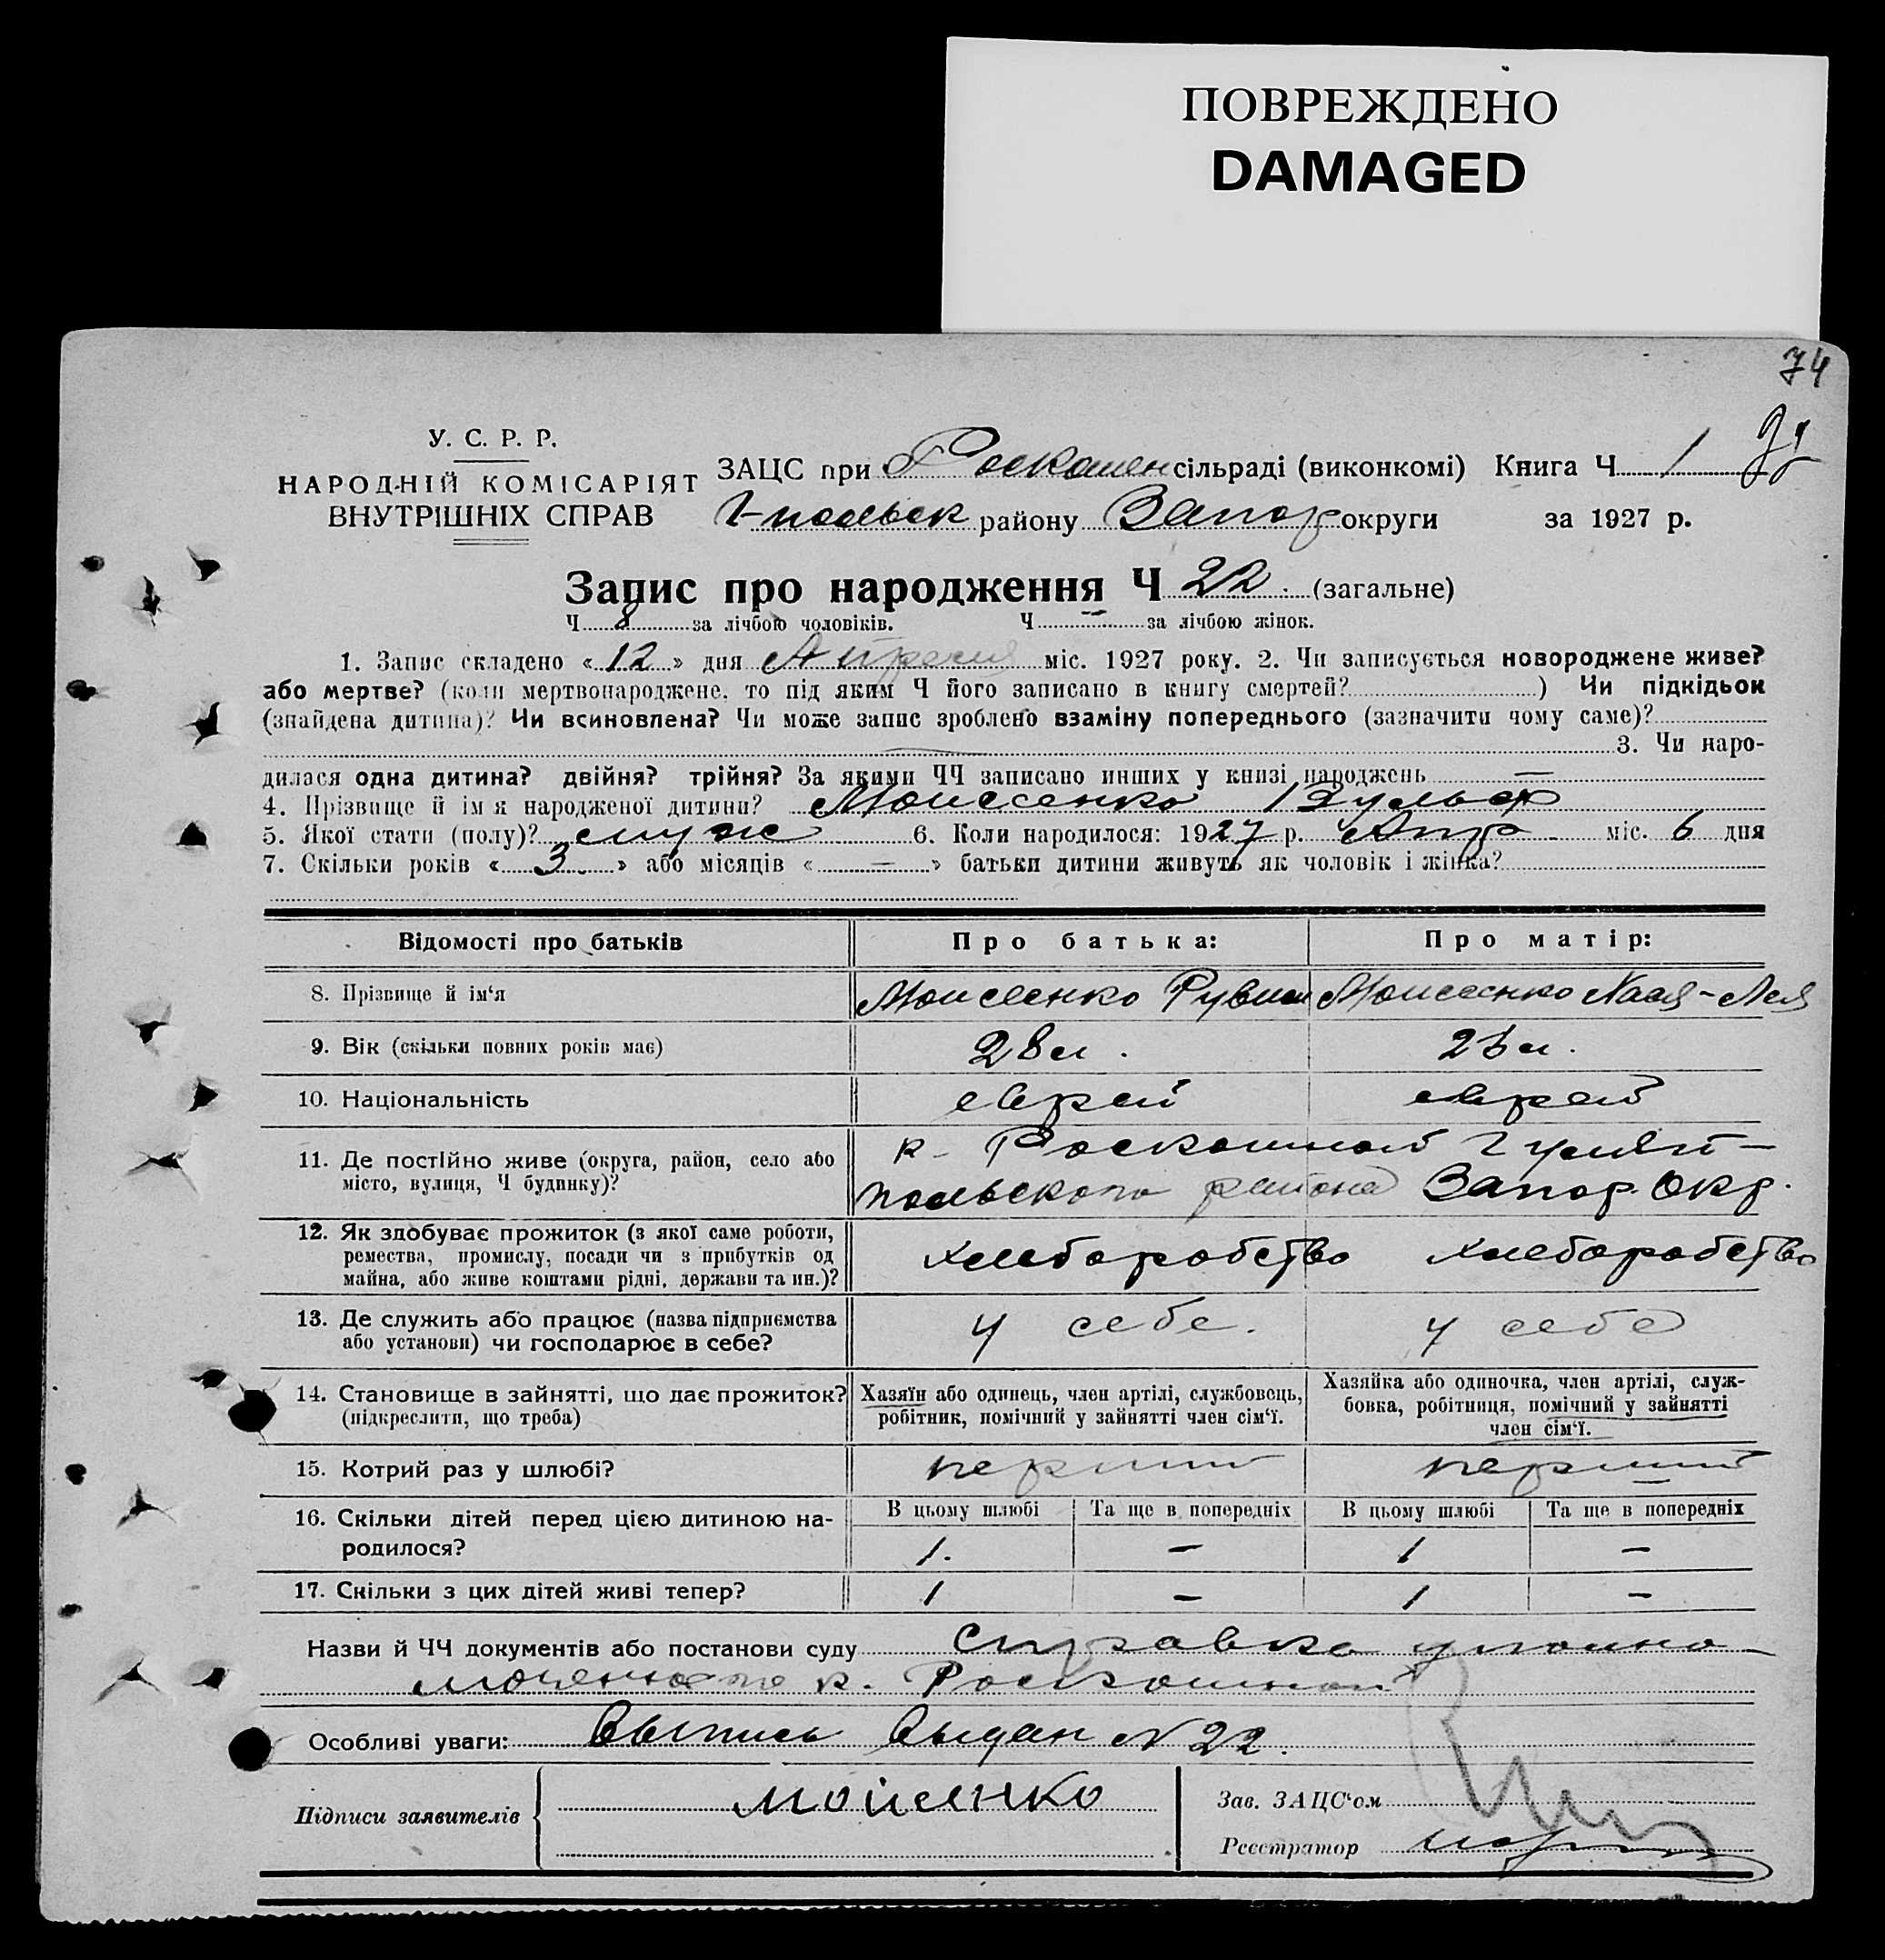 ПОВРЕЖДЕНО
DAMAGED
74
У. С. Р. Р.
НАРОДНІЙ КОМІСАРІЯТ
ВНУТРІШНІХ СПРАВ
ЗАЦС при Роскошен сільраді (виконкомі) Книга Ч 1
Г-польск району Запор округи за 1927 р.
Запис про народження Ч 22. (загальне)
Ч 8 за лічбою чоловіків. Ч — за лічбою жінок.
1. Запис складено « 12 » дня Апреля міс. 1927 року. 2. Чи записується новороджене живе?
або мертве? (коли мертвонароджене, то під яким Ч його записано в книгу смертей? ) Чи підкідьок
(знайдена дитина)? Чи всиновлена? Чи може запис зроблено взаміну попереднього (зазначити чому саме)?
3. Чи наро-
дилася одна дитина? двійня? трійня? За якими ЧЧ записано инших у книзі народжень —
4. Прізвище й ім'я народженої дитини? Моисеенко
5. Якої стати (полу)? муж 6. Коли народилося: 1927 р. Апр міс. 6 дня
7. Скільки років « 3 » або місяців « — » батьки дитини живуть як чоловік і жінка?
Відомості про батьків
Про батька:
Про матір:
8. Прізвище й ім'я
Моисеенко Рувин
Моисеенко Хая-Лея
9. Вік (скільки повних років має)
28 л.
10. Національність
еврей
еврей
11. Де постійно живе (округа, район, село або
місто, вулиця, Ч будинку)?
к. Роскошной Гуляй-
польского района Запор. Окр.
12. Як здобуває прожиток (з якої саме роботи,
ремества, промислу, посади чи з прибутків од
майна, або живе коштами рідні, держави та ин.)?
хлеборобство
хлеборобство
13. Де служить або працює (назва підприємства
або установи) чи господарює в себе?
у себе.
у себе
14. Становище в зайнятті, що дає прожиток?
(підкреслити, що треба)
Хазяїн або одинець, член артілі, службовець,
робітник, помічний у зайнятті член сім'ї.
Хазяйка або одиночка, член артілі, служ-
бовка, робітниця, помічний у зайнятті
член сім'ї.
15. Котрий раз у шлюбі?
перший
перший
16. Скільки дітей перед цією дитиною на-
родилося?
В цьому шлюбі
Та ще в попередніх
В цьому шлюбі
Та ще в попередніх
1. — 1 —
17. Скільки з цих дітей живі тепер?
1 — 1 —
Назви й ЧЧ документів або постанови суду справка уполно-
моченного к. Роскошной
Особливі уваги: Выпись выдан N 22.
Підписи заявителів
Мойсенко
Зав. ЗАЦС'ом
Реєстратор